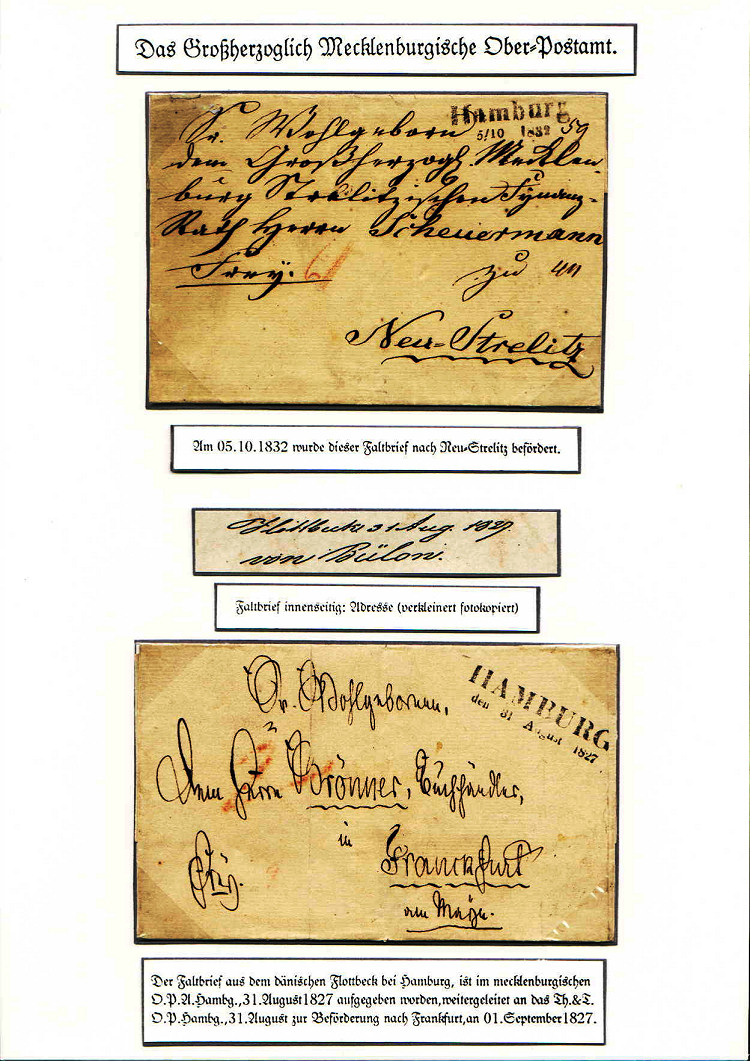 Das Großherzoglich Mecklenburgische Ober-Postamt.
Hamburg
5/10 1832
Sr. Wohlgeborn 59
dem Großherzogl. Mecklen-
burg Strelitzischen Fynanz-
Rath Herrn Scheuermann
Frey. zu
Neu-Strelitz
Am 05.10.1832 wurde dieser Faltbrief nach Neu-Strelitz befördert.
Flottbeck 31 Aug. 1827.
von Bülow.
Faltbrief innenseitig: Adresse (verkleinert fotokopiert)
HAMBURG
den 31 August 1827
Sr. Wohlgebornen,
Dem Herrn Brönner, Buchhändler,
in
Franckfurt
am Mayn.
Frey.
Der Faltbrief aus dem dänischen Flottbeck bei Hamburg, ist im mecklenburgischen
O.P.A.Hambg.,31.August1827 aufgegeben worden,weitergeleitet an das Th.&T.
O.P.Hambg.,31.August zur Beförderung nach Frankfurt,an 01.September1827.